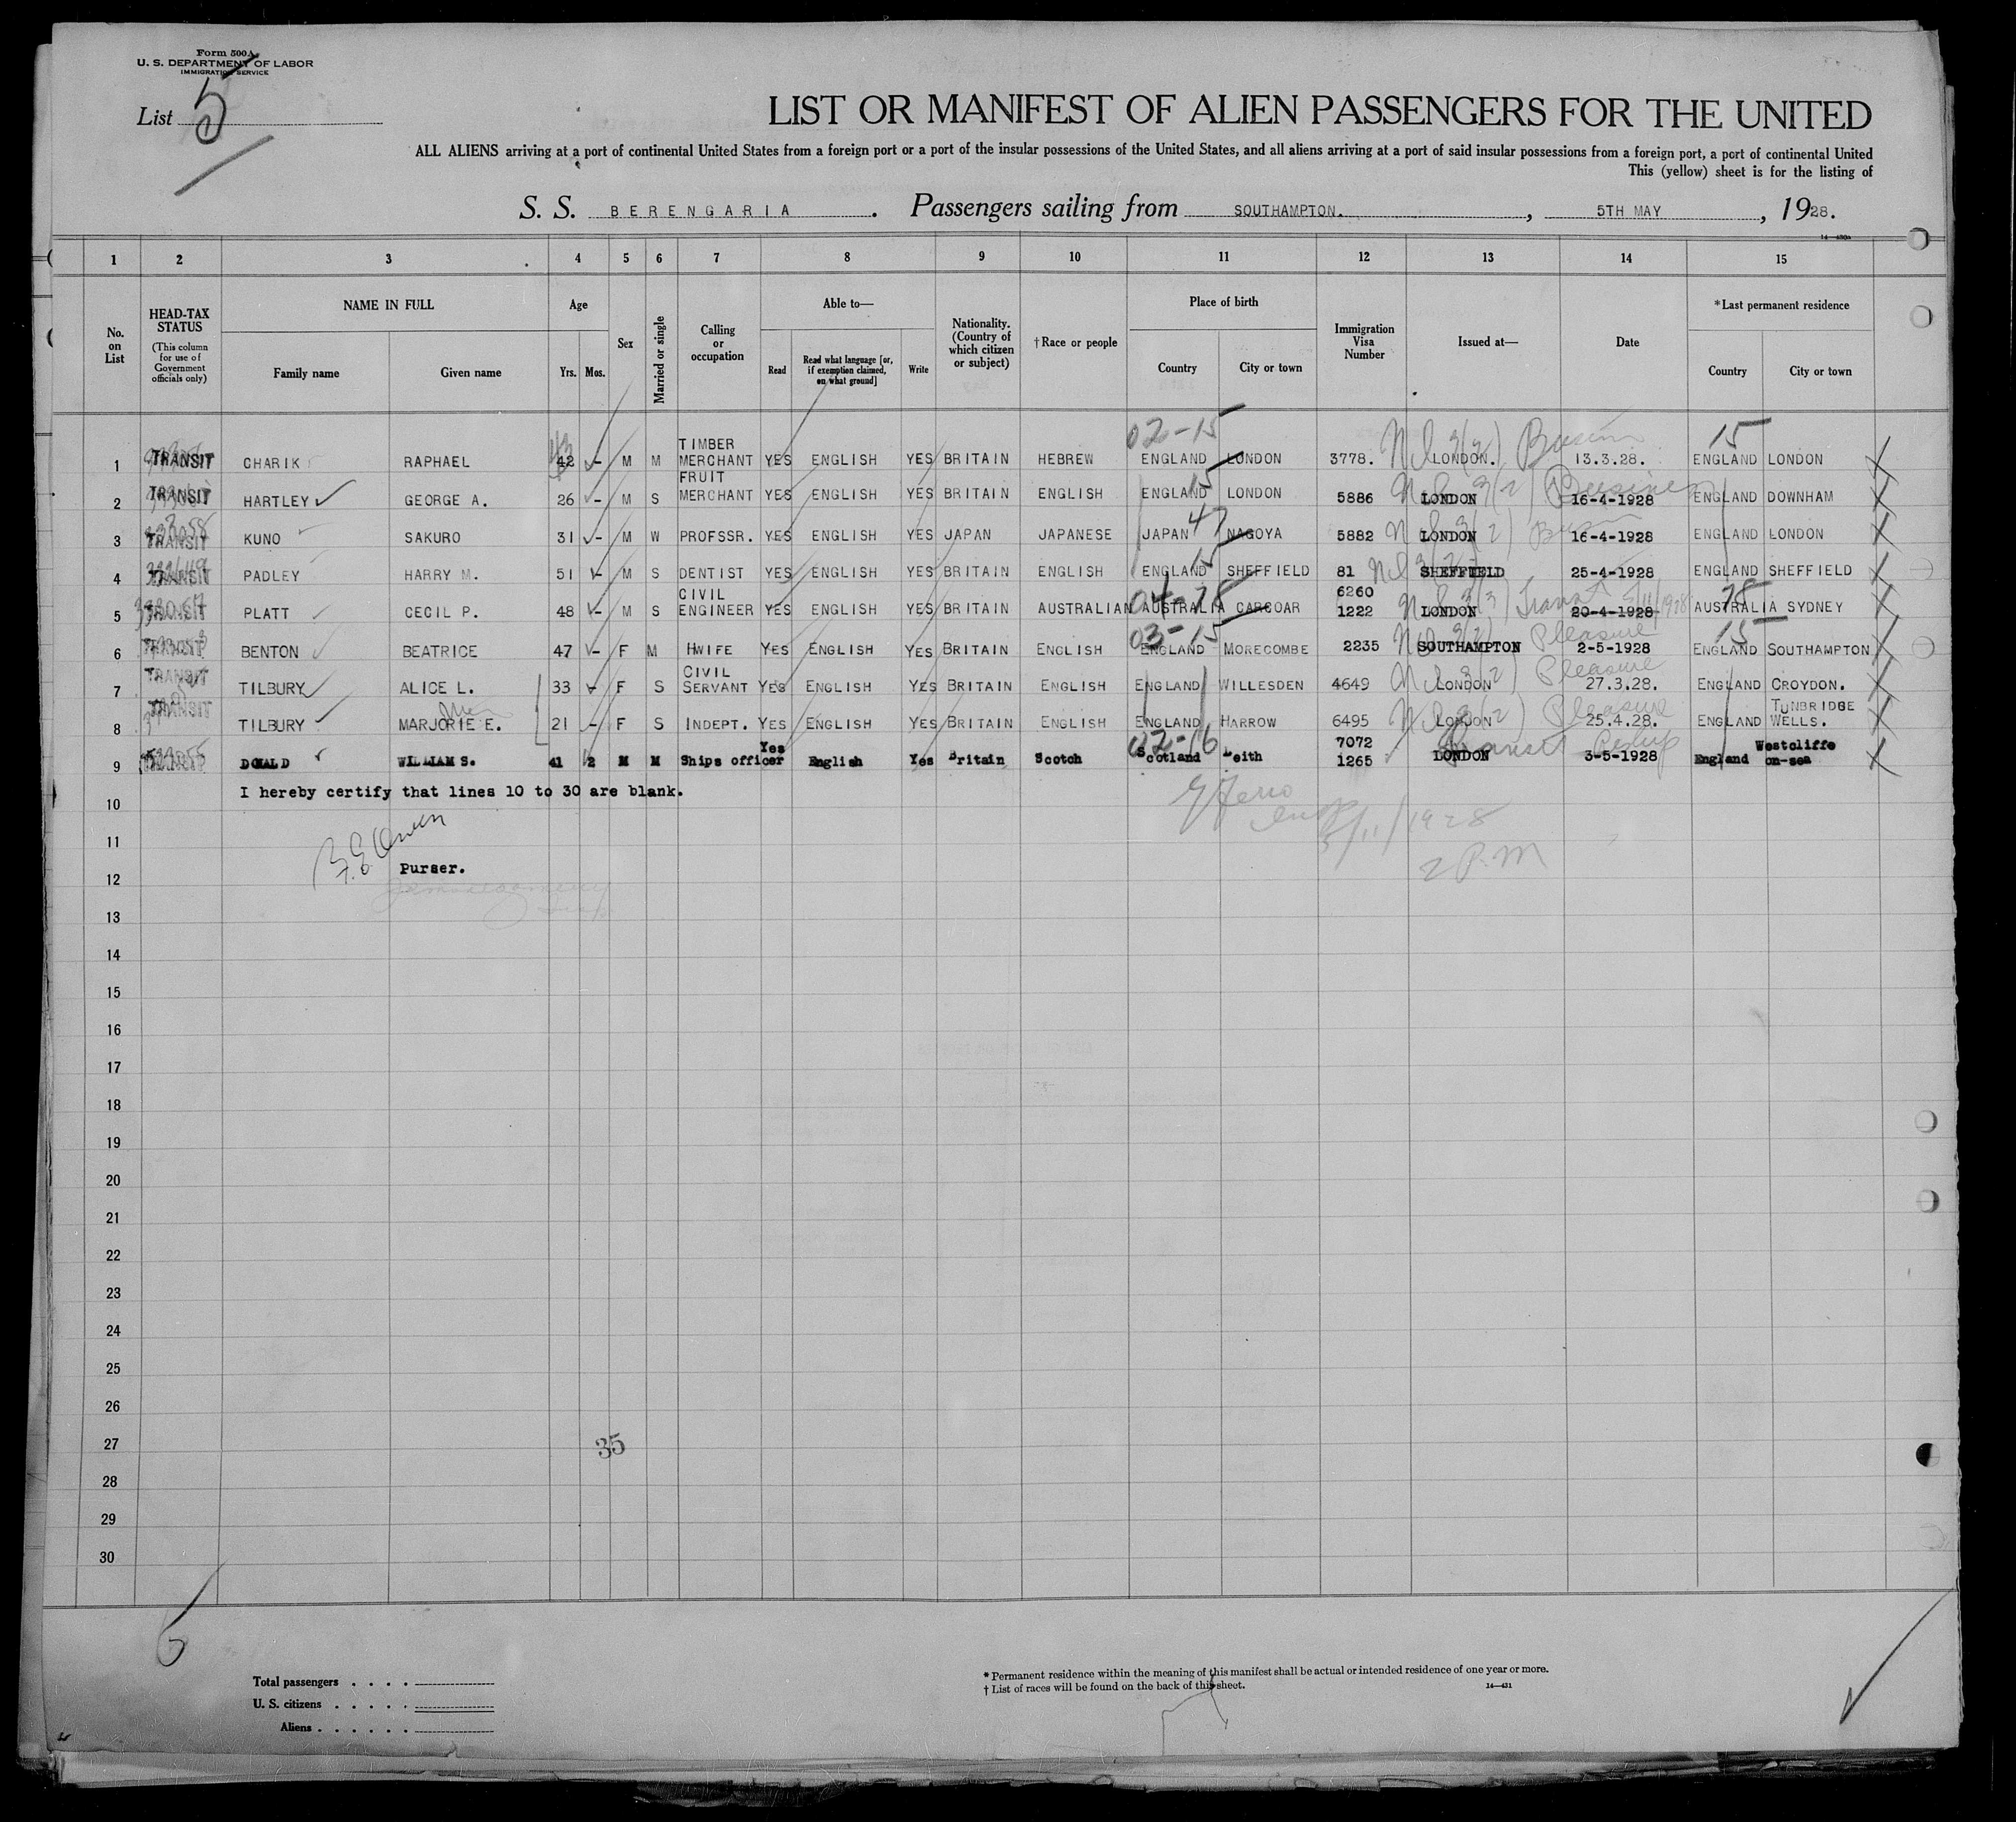 Form 500A
U. S. DEPARTMENT OF LABOR
IMMIGRATION SERVICE
List 5
LIST OR MANIFEST OF ALIEN PASSENGERS FOR THE UNITED
ALL ALIENS arriving at a port of continental United States from a foreign port or a port of the insular possessions of the United States, and all aliens arriving at a port of said insular possessions from a foreign port, a port of continental United
This (yellow) sheet is for the listing of
S. S. BERENGARIA. Passengers sailing from SOUTHAMPTON., 5TH MAY, 1928.
14—430a
1 2 3 4 5 6 7 8 9 10 11 12 13 14 15
No. on List
HEAD-TAX STATUS (This column for use of Government officials only)
NAME IN FULL
Family name Given name
Age
Yrs. Mos.
Sex
Married or single
Calling or occupation
Able to—
Read Read what language [or, if exemption claimed, on what ground] Write
Nationality. (Country of which citizen or subject)
†Race or people
Place of birth
Country City or town
Immigration Visa Number
Issued at—
Date
*Last permanent residence
Country City or town
02-15 15
1 TRANSIT CHARIK RAPHAEL 42 - M M TIMBER MERCHANT YES ENGLISH YES BRITAIN HEBREW ENGLAND LONDON 3778. LONDON. 13.3.28. ENGLAND LONDON
2 TRANSIT HARTLEY GEORGE A. 26 - M S FRUIT MERCHANT YES ENGLISH YES BRITAIN ENGLISH ENGLAND 15 LONDON 5886 LONDON 16-4-1928 ENGLAND DOWNHAM
3 TRANSIT KUNO SAKURO 31 - M W PROFSSR. YES ENGLISH YES JAPAN JAPANESE JAPAN 47 NAGOYA 5882 LONDON 16-4-1928 ENGLAND LONDON
4 TRANSIT PADLEY HARRY M. 51 - M S DENTIST YES ENGLISH YES BRITAIN ENGLISH ENGLAND 15 SHEFFIELD 81 SHEFFIELD 25-4-1928 ENGLAND SHEFFIELD
5 TRANSIT PLATT CECIL P. 48 - M S CIVIL ENGINEER YES ENGLISH YES BRITAIN AUSTRALIAN AUSTRALIA CARCOAR 6260 1222 LONDON Transit 20-4-1928 AUSTRALIA SYDNEY
03-15 Pleasure 15
6 TRANSIT BENTON BEATRICE 47 - F M HWIFE YES ENGLISH YES BRITAIN ENGLISH ENGLAND MORECOMBE 2235 SOUTHAMPTON 2-5-1928 ENGLAND SOUTHAMPTON
7 TRANSIT TILBURY ALICE L. 33 - F S CIVIL SERVANT YES ENGLISH YES BRITAIN ENGLISH ENGLAND WILLESDEN 4649 LONDON Pleasure 27.3.28. ENGLAND CROYDON.
8 TRANSIT TILBURY MARJORIE E. 21 - F S INDEPT. YES ENGLISH YES BRITAIN ENGLISH ENGLAND HARROW 6495 LONDON Pleasure 25.4.28. ENGLAND TUNBRIDGE WELLS.
02-16
9 DONALD WILLIAM S. 41 2 M M Ships officer Yes English Yes Britain Scotch Scotland Leith 7072 1265 LONDON 3-5-1928 England Westcliffe on-sea
10 I hereby certify that lines 10 to 30 are blank.
11
12 Purser.
5/11/1928
2 P.M
13
14
15
16
17
18
19
20
21
22
23
24
25
26
27 35
28
29
30
Total passengers . . . .
U. S. citizens . . . . .
Aliens . . . . . .
* Permanent residence within the meaning of this manifest shall be actual or intended residence of one year or more.
† List of races will be found on the back of this sheet.
14—431